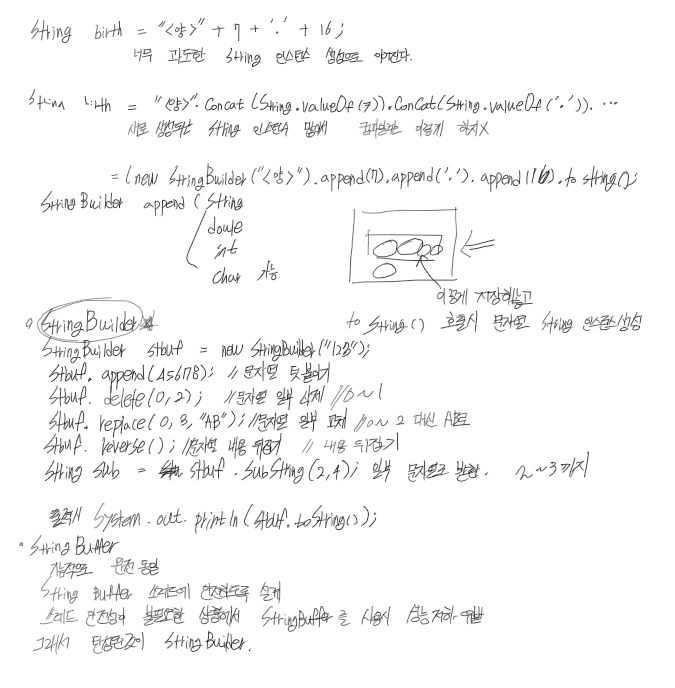 String birth = "<양>" + 7 + '.' + 16;
너무 과도한 String 인스턴스 생성으로 이어진다.
String birth = "<양>".concat(String.valueOf(7)).concat(String.valueOf('.')). ...
새로 생성되는 String 인스턴스 많아서 컴파일러는 이렇게 하지X
= (new StringBuilder("<양>").append(7).append('.').append(16).toString();
StringBuilder append ( String
double
int
char 가능
이렇게 저장해놓고
toString() 호출시 문자열 String 인스턴스 생성
StringBuilder
StringBuilder stbuf = new StringBuilder("123");
stbuf.append(45678); //문자열 덧붙이기
stbuf.delete(0,2); //문자열 일부 삭제 //0~1
stbuf.replace(0,3,"AB"); //문자열 일부 교체 //0~2 대신 AB로
stbuf.reverse(); //문자열 내용 뒤집기 // 내용 뒤집기
String sub = stbuf.subString(2,4); 일부 문자열로 반환. 2~3까지
출력시 System.out.println(stbuf.toString());
• StringBuffer
기능적으로 완전 동일
String Buffer 쓰레드에 안전하도록 설계
쓰레드 안전성이 불필요한 상황에서 StringBuffer를 사용시 성능 저하 유발
그래서 탄생된것이 StringBuilder.